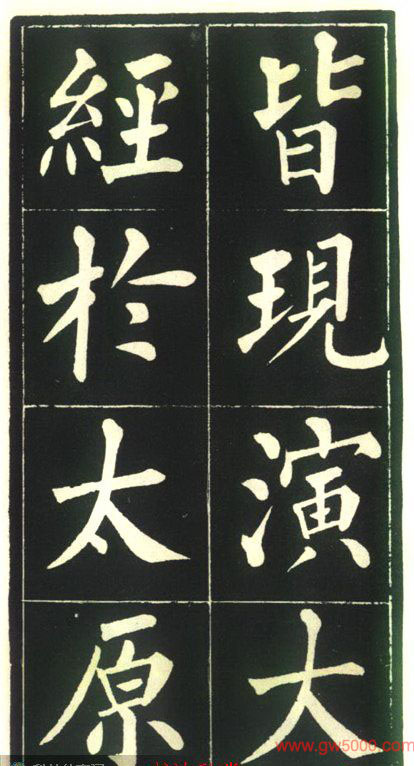 皆現演大
經於太原
www.gw5000.com